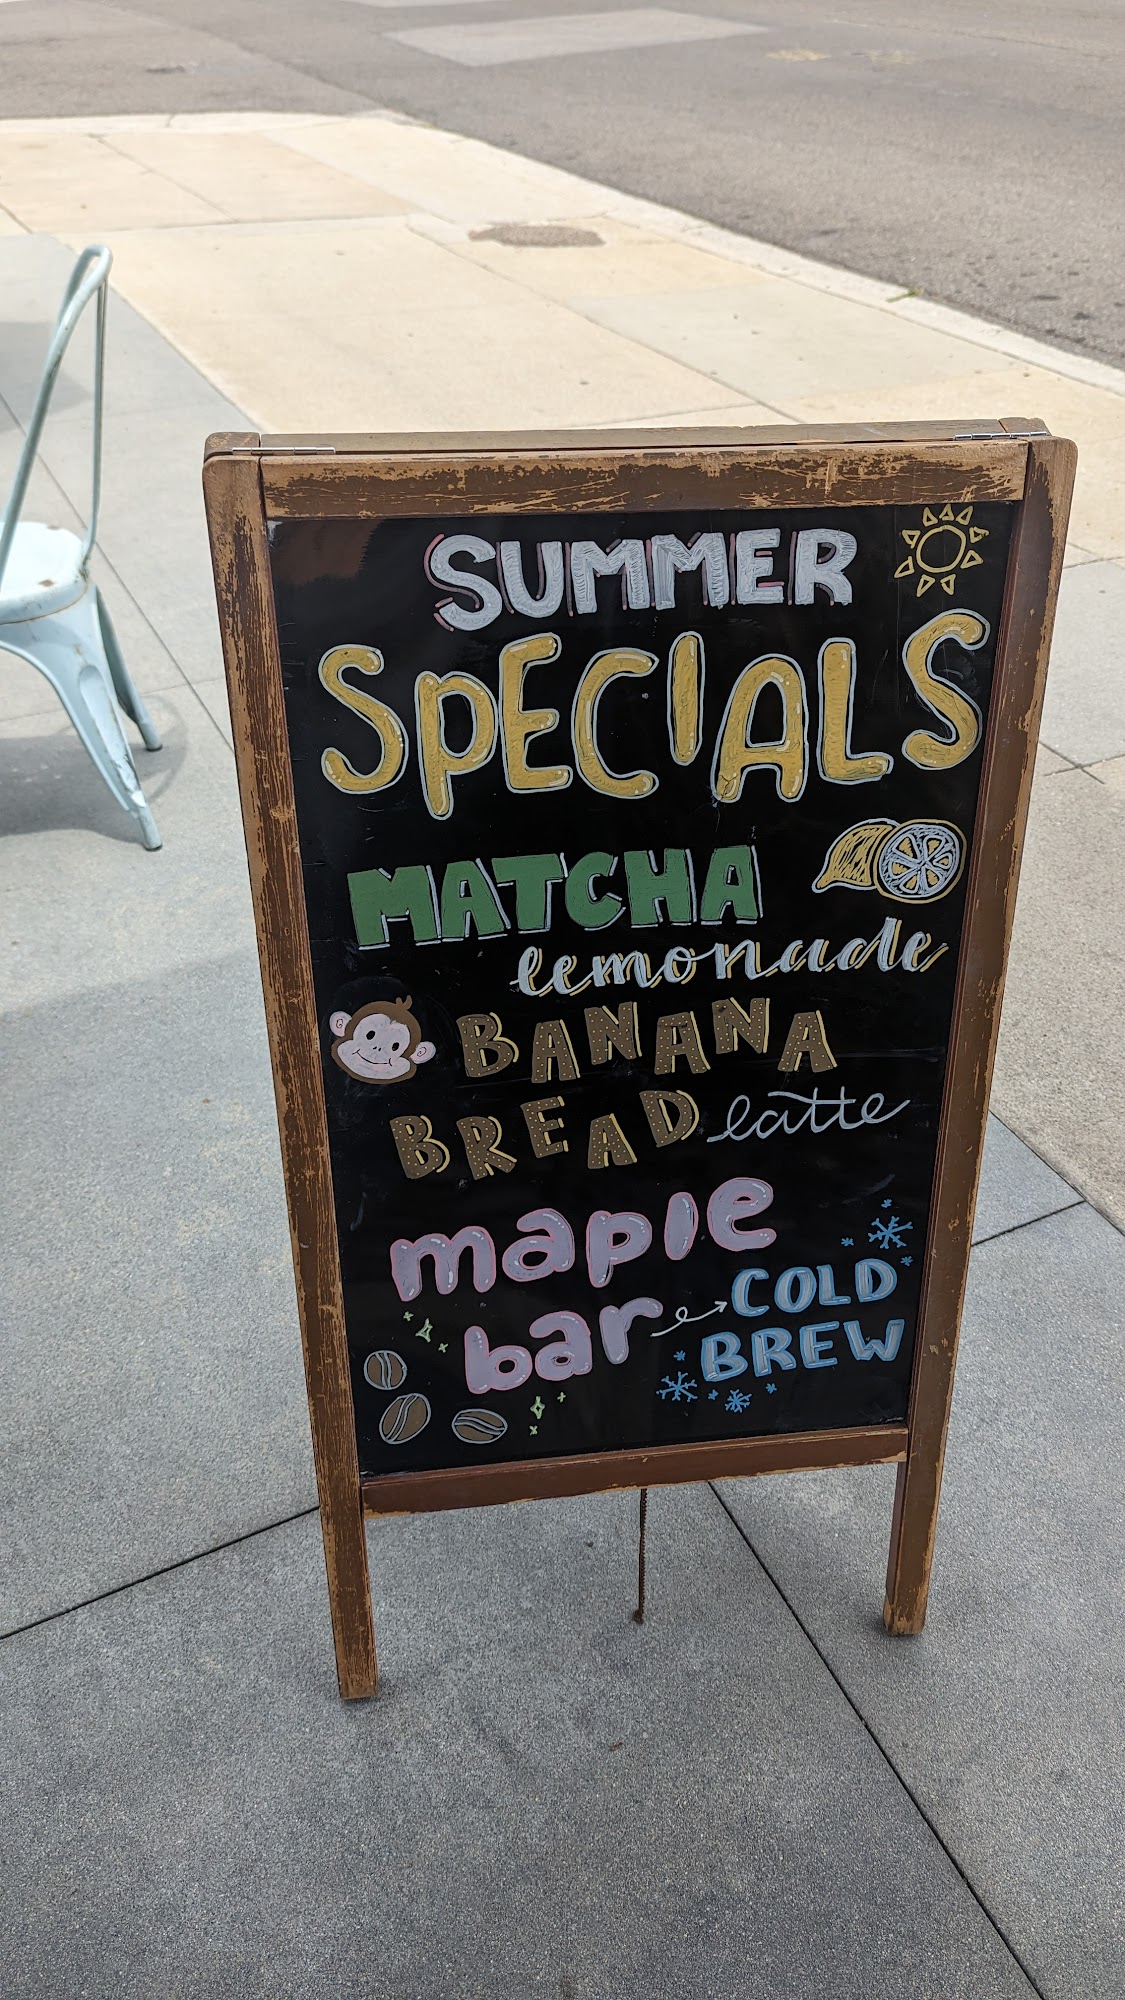 SUMMER
SPECIALS
MATCHA
lemonade
BANANA
BREAD latte
maple
bar COLD
BREW